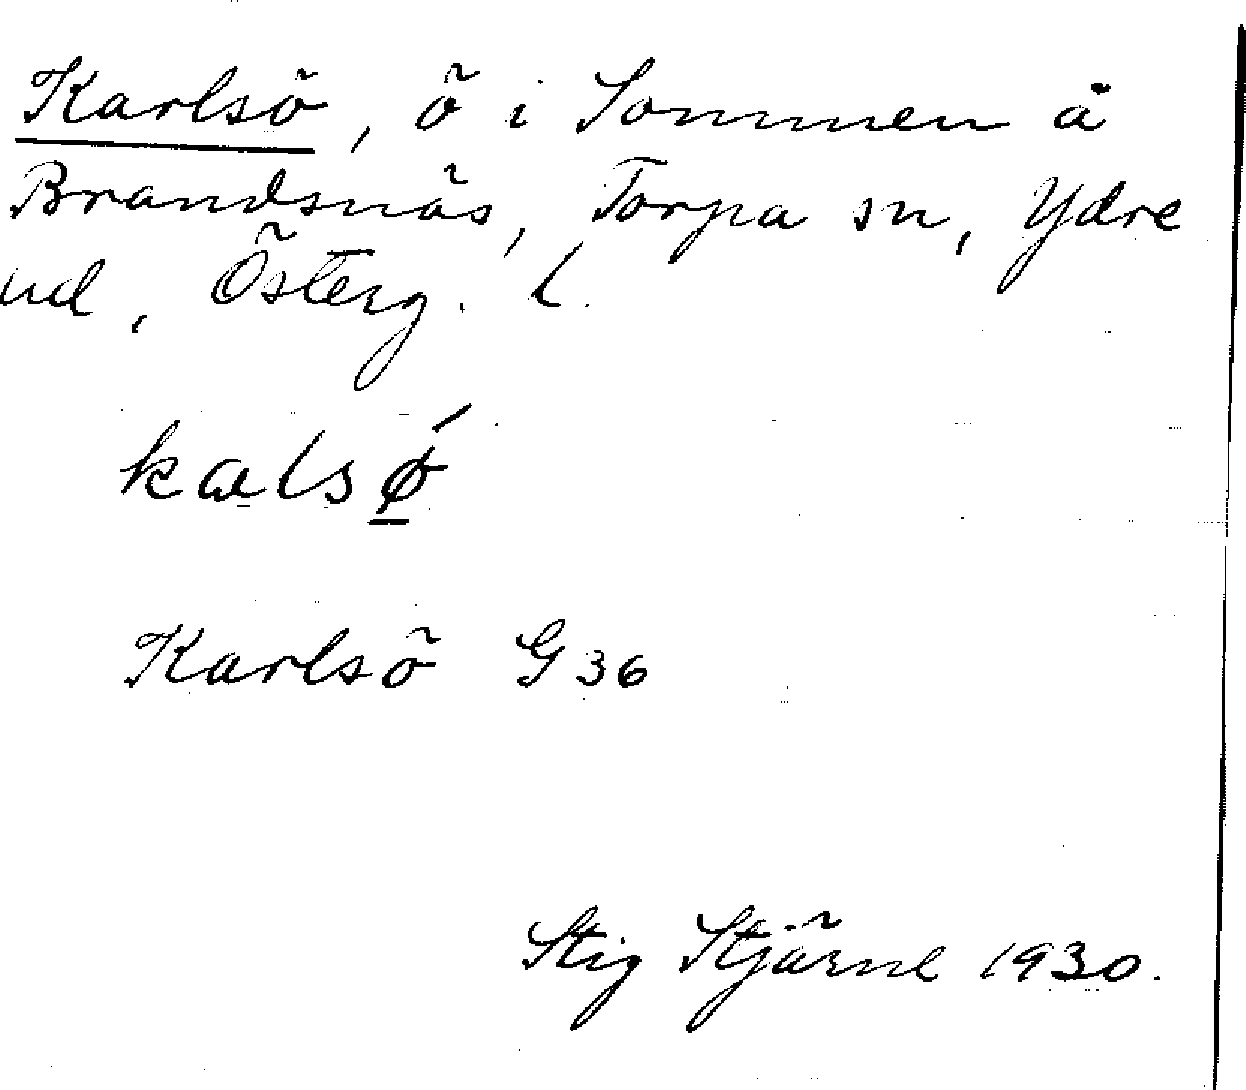 Karlsö, ö i Sommen å
Brandsnäs, Torpa sn, Ydre
hd, Österg. l.
kalsø
Karlsö G 36
Stig Stjärne 1930.